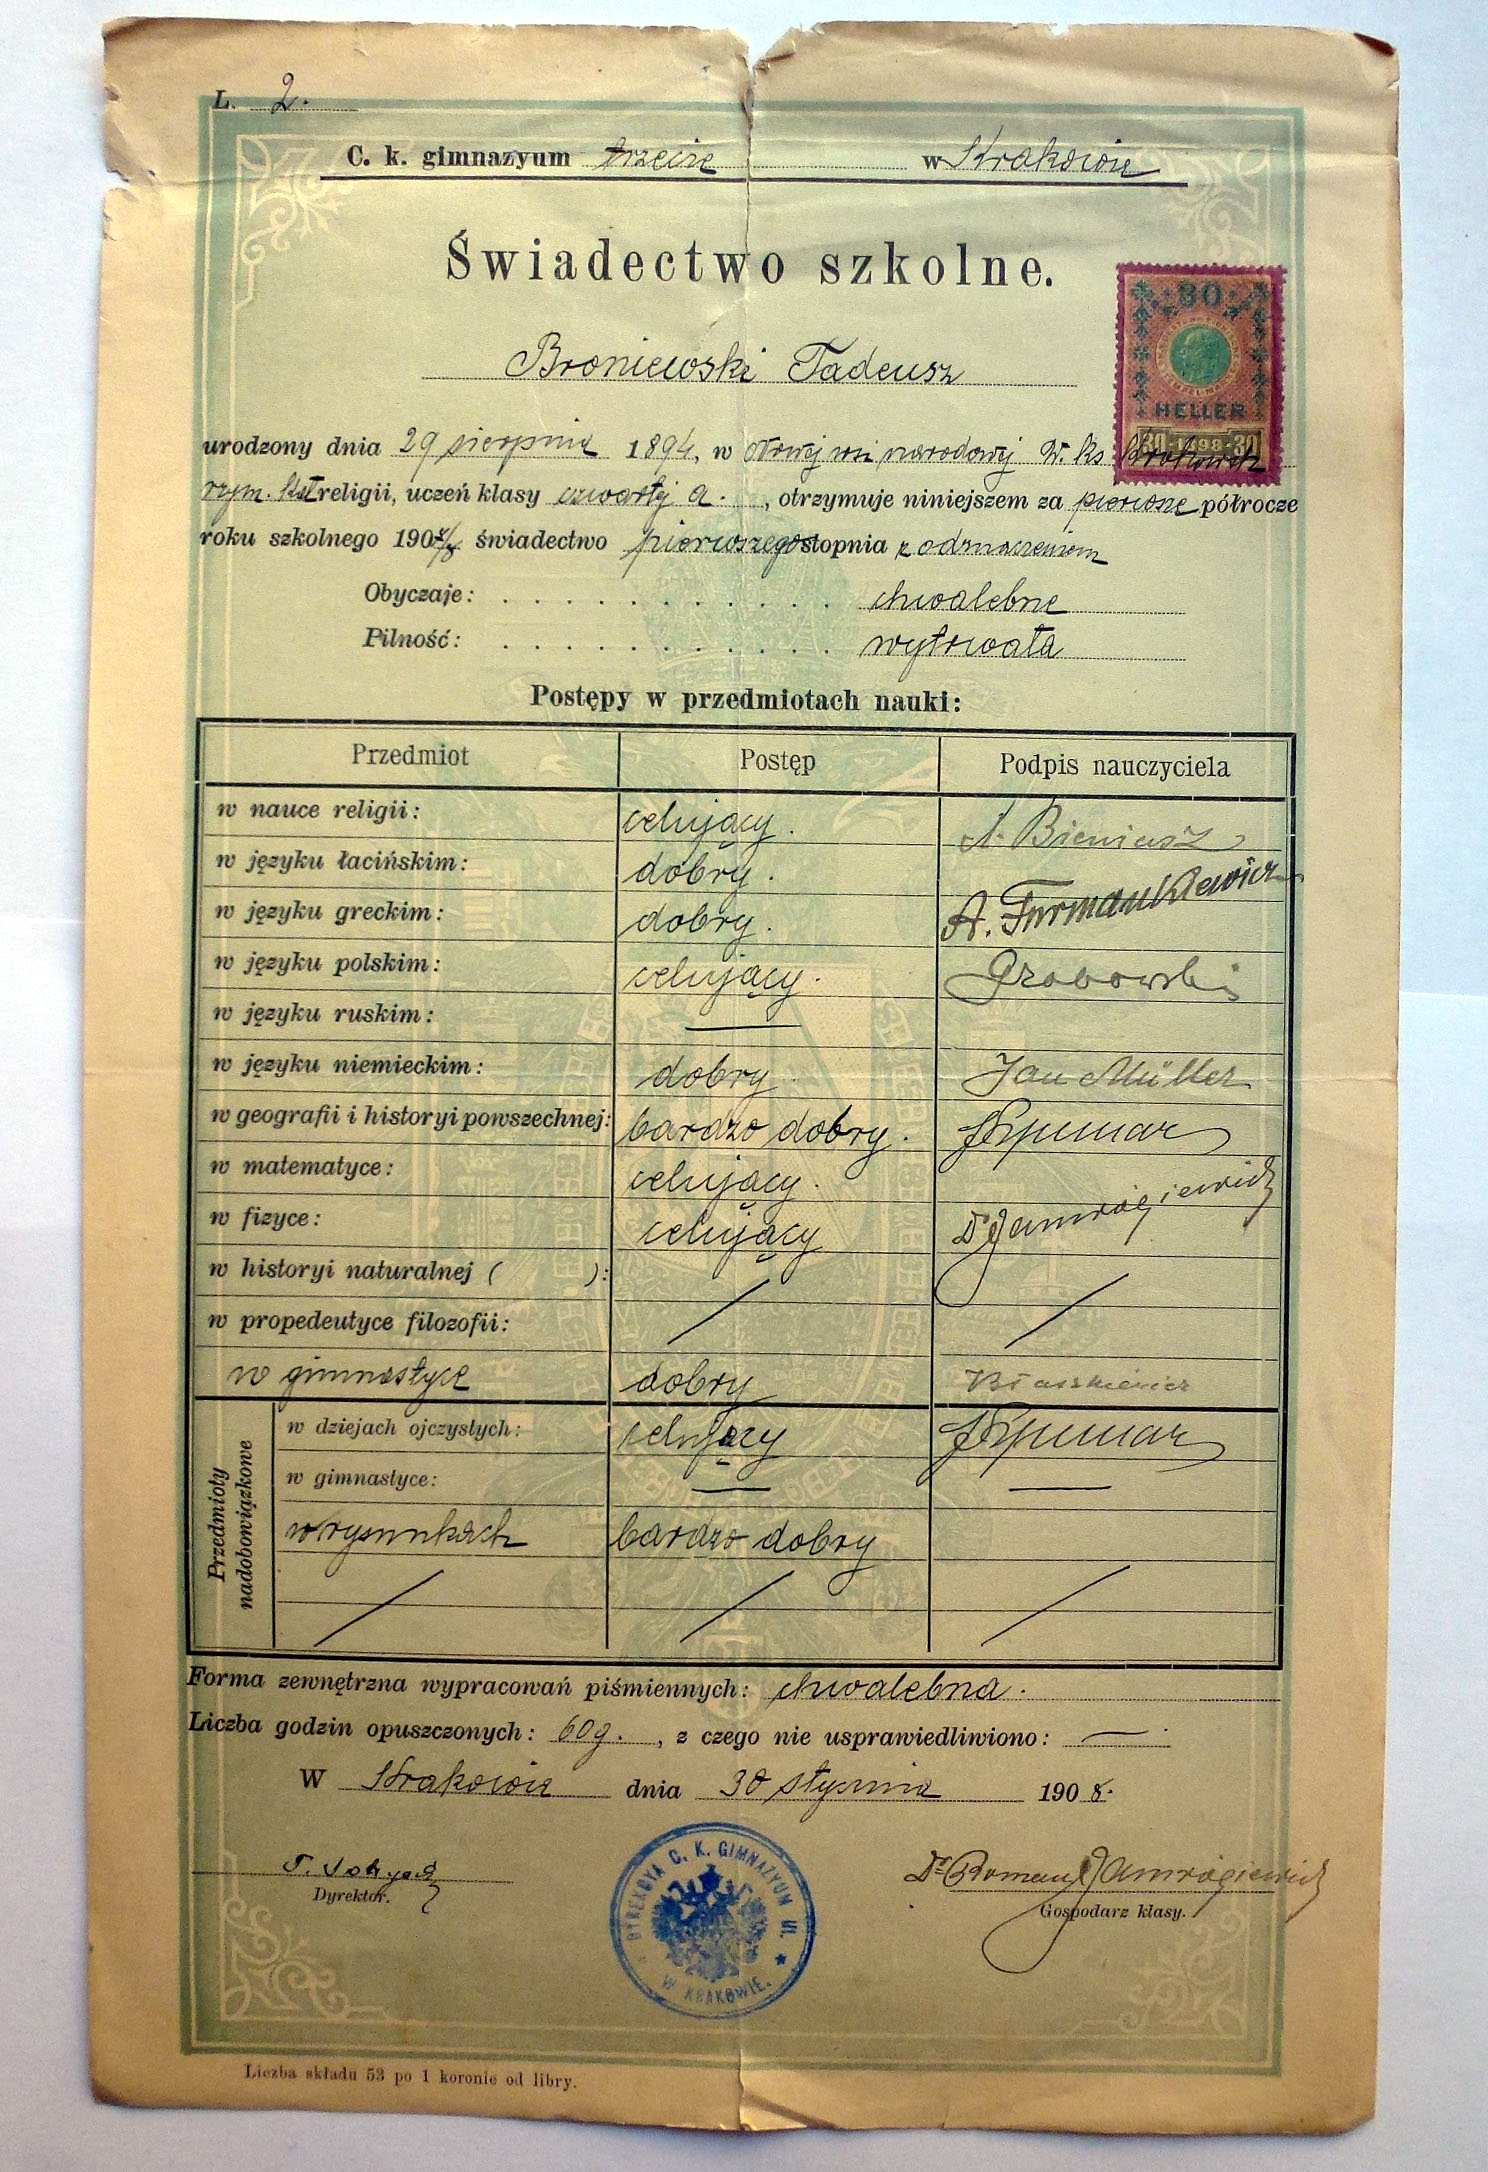 L. 2.
C. k. gimnazyum trzecie w Krakowie
Świadectwo szkolne.
30
HELLER
30 1898 30
Broniewski Tadeusz
urodzony dnia 29 sierpnia 1894, w Nowej wsi narodowej W. ks. Krakowsk
rzym. kat religii, uczeń klasy czwartej a. , otrzymuje niniejszem za pierwsze półrocze
roku szkolnego 1907/8 świadectwo pierwszego stopnia z odznaczeniem
Obyczaje: chwalebne
Pilność: wytrwała
Postępy w przedmiotach nauki:
Przedmiot Postęp Podpis nauczyciela
w nauce religii: celujący. Bieniasz
w języku łacińskim: dobry.
w języku greckim: dobry. A. Furmankiewicz
w języku polskim: celujący. Grabowski
w języku ruskim: —
w języku niemieckim: dobry Jan Müller
w geografii i historyi powszechnej: bardzo dobry.
w matematyce: celujący.
w fizyce: celujący Dr Jamrógiewicz
w historyi naturalnej ( ):
w propedeutyce filozofii:
w gimnastyce dobry
Przedmioty nadobowiązkowe
w dziejach ojczystych: celujący
w gimnastyce: — —
w rysunkach bardzo dobry
Forma zewnętrzna wypracowań piśmiennych: chwalebna.
Liczba godzin opuszczonych: 60 g. , z czego nie usprawiedliwiono: —
W Krakowie dnia 30 stycznia 1908.
Dr Roman Jamrógiewicz
Dyrektor. Gospodarz klasy.
DYREKCYA C. K. GIMNAZYUM III. W KRAKOWIE.
Liczba składu 53 po 1 koronie od libry.